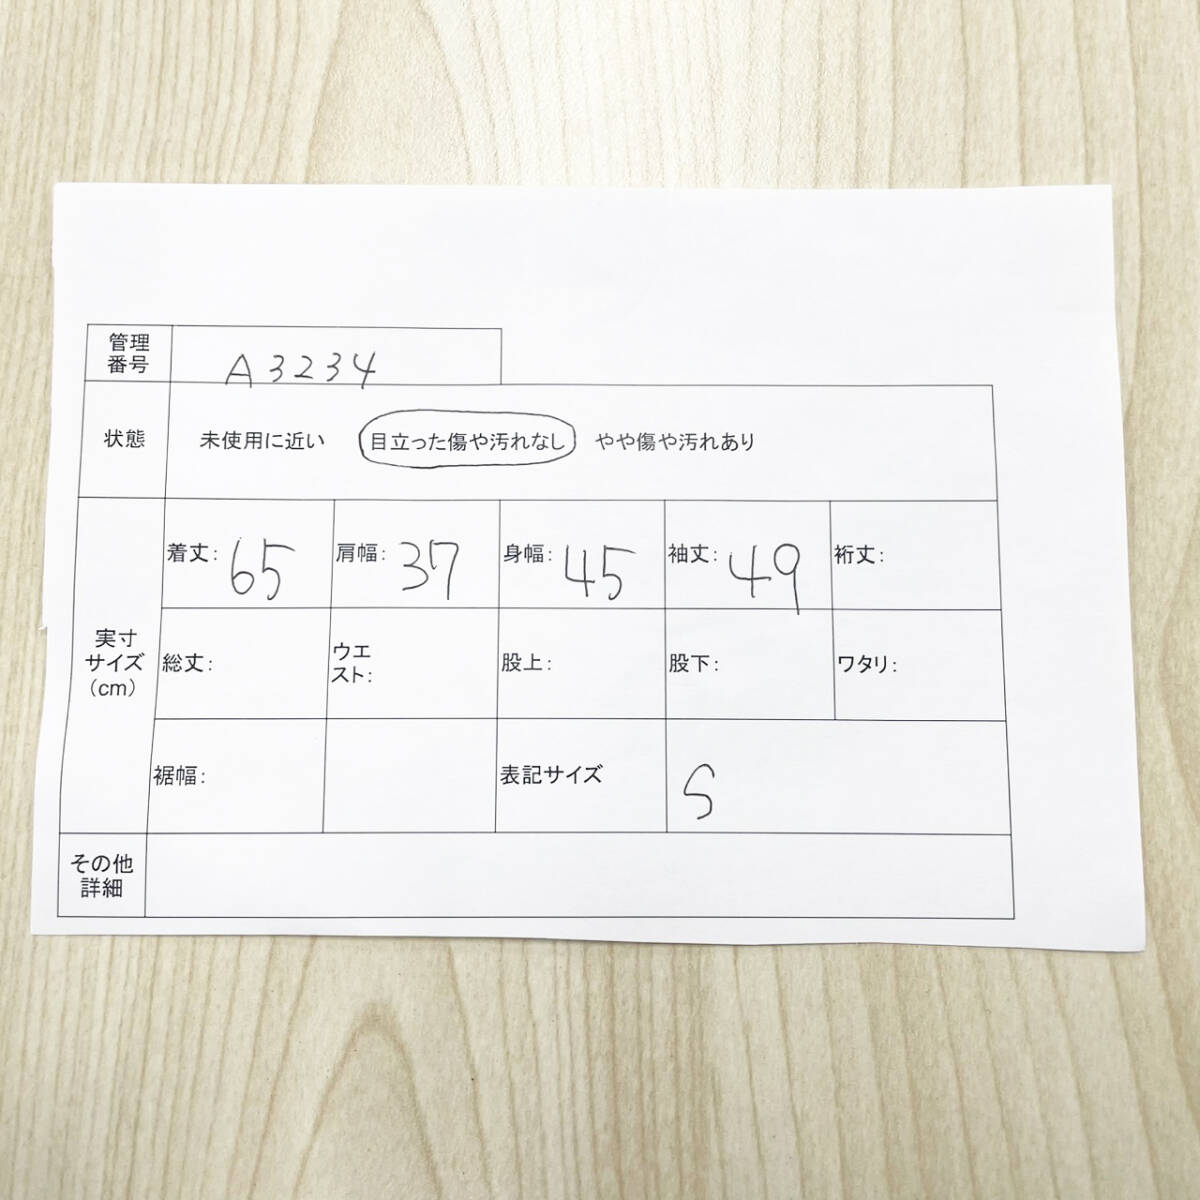 管理
番号
A3234
状態
未使用に近い 目立った傷や汚れなし やや傷や汚れあり
実寸
サイズ
(cm)
着丈: 65 肩幅: 37 身幅: 45 袖丈: 49 裄丈:
総丈: ウエ
スト: 股上: 股下: ワタリ:
裾幅: 表記サイズ S
その他
詳細